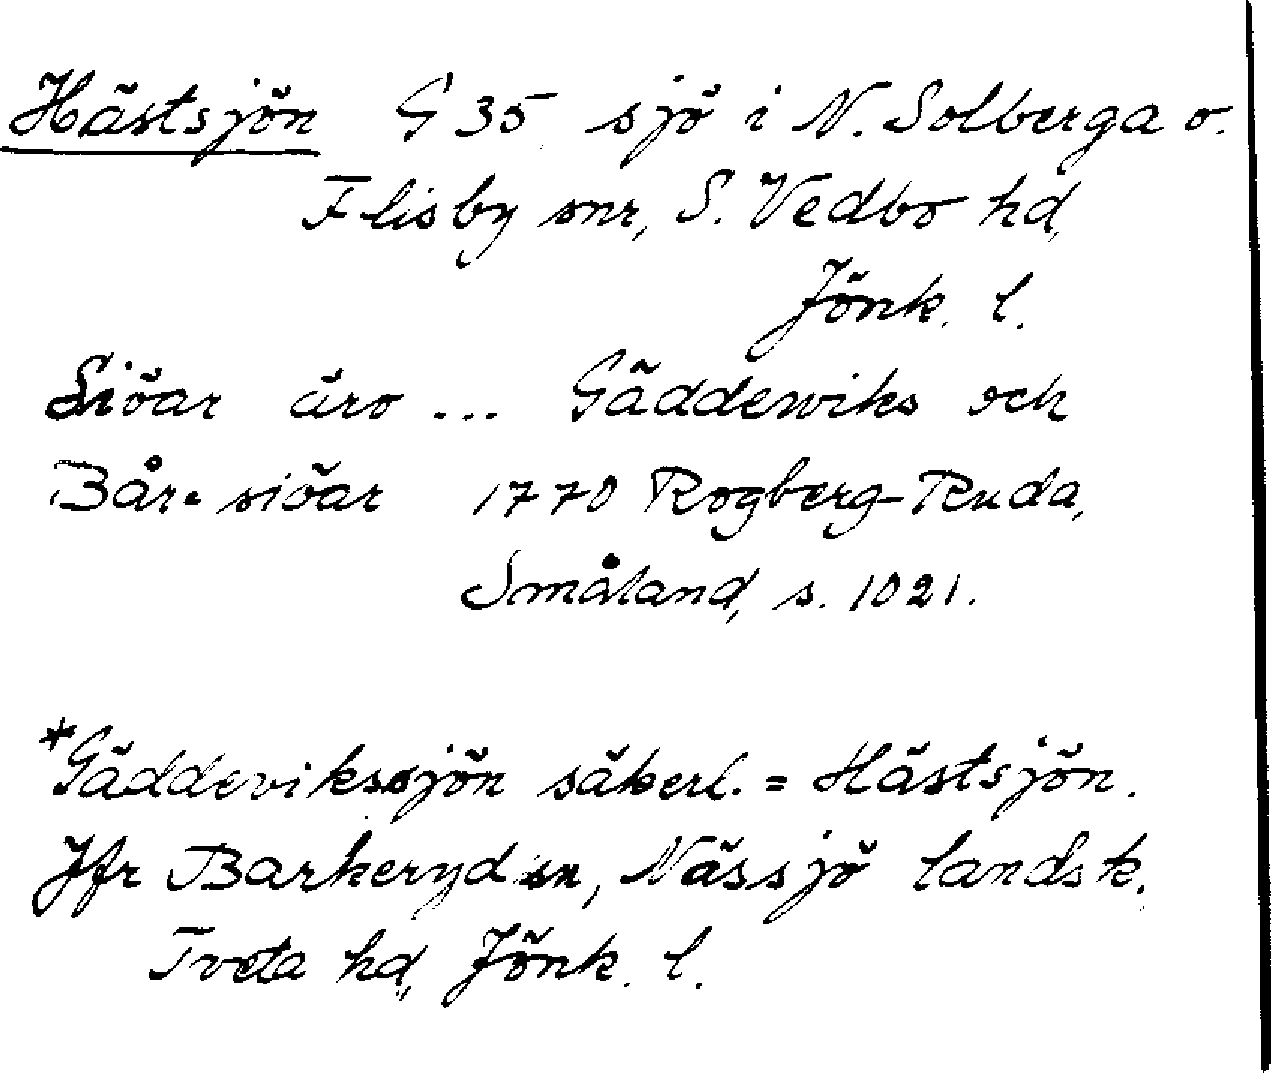 Hästsjön G 35 sjö i N. Solberga o.
Flisby snr, S. Vedbo hd,
Jönk. l.
Siöar äro ... Gäddewiks och
Bår= siöar 1770 Rogberg-Ruda,
Småland, s. 1021.
*Gäddevikssjön säkerl. = Hästsjön.
Jfr Barkeryd sn, Nässjö landsk.
Tveta hd, Jönk. l.